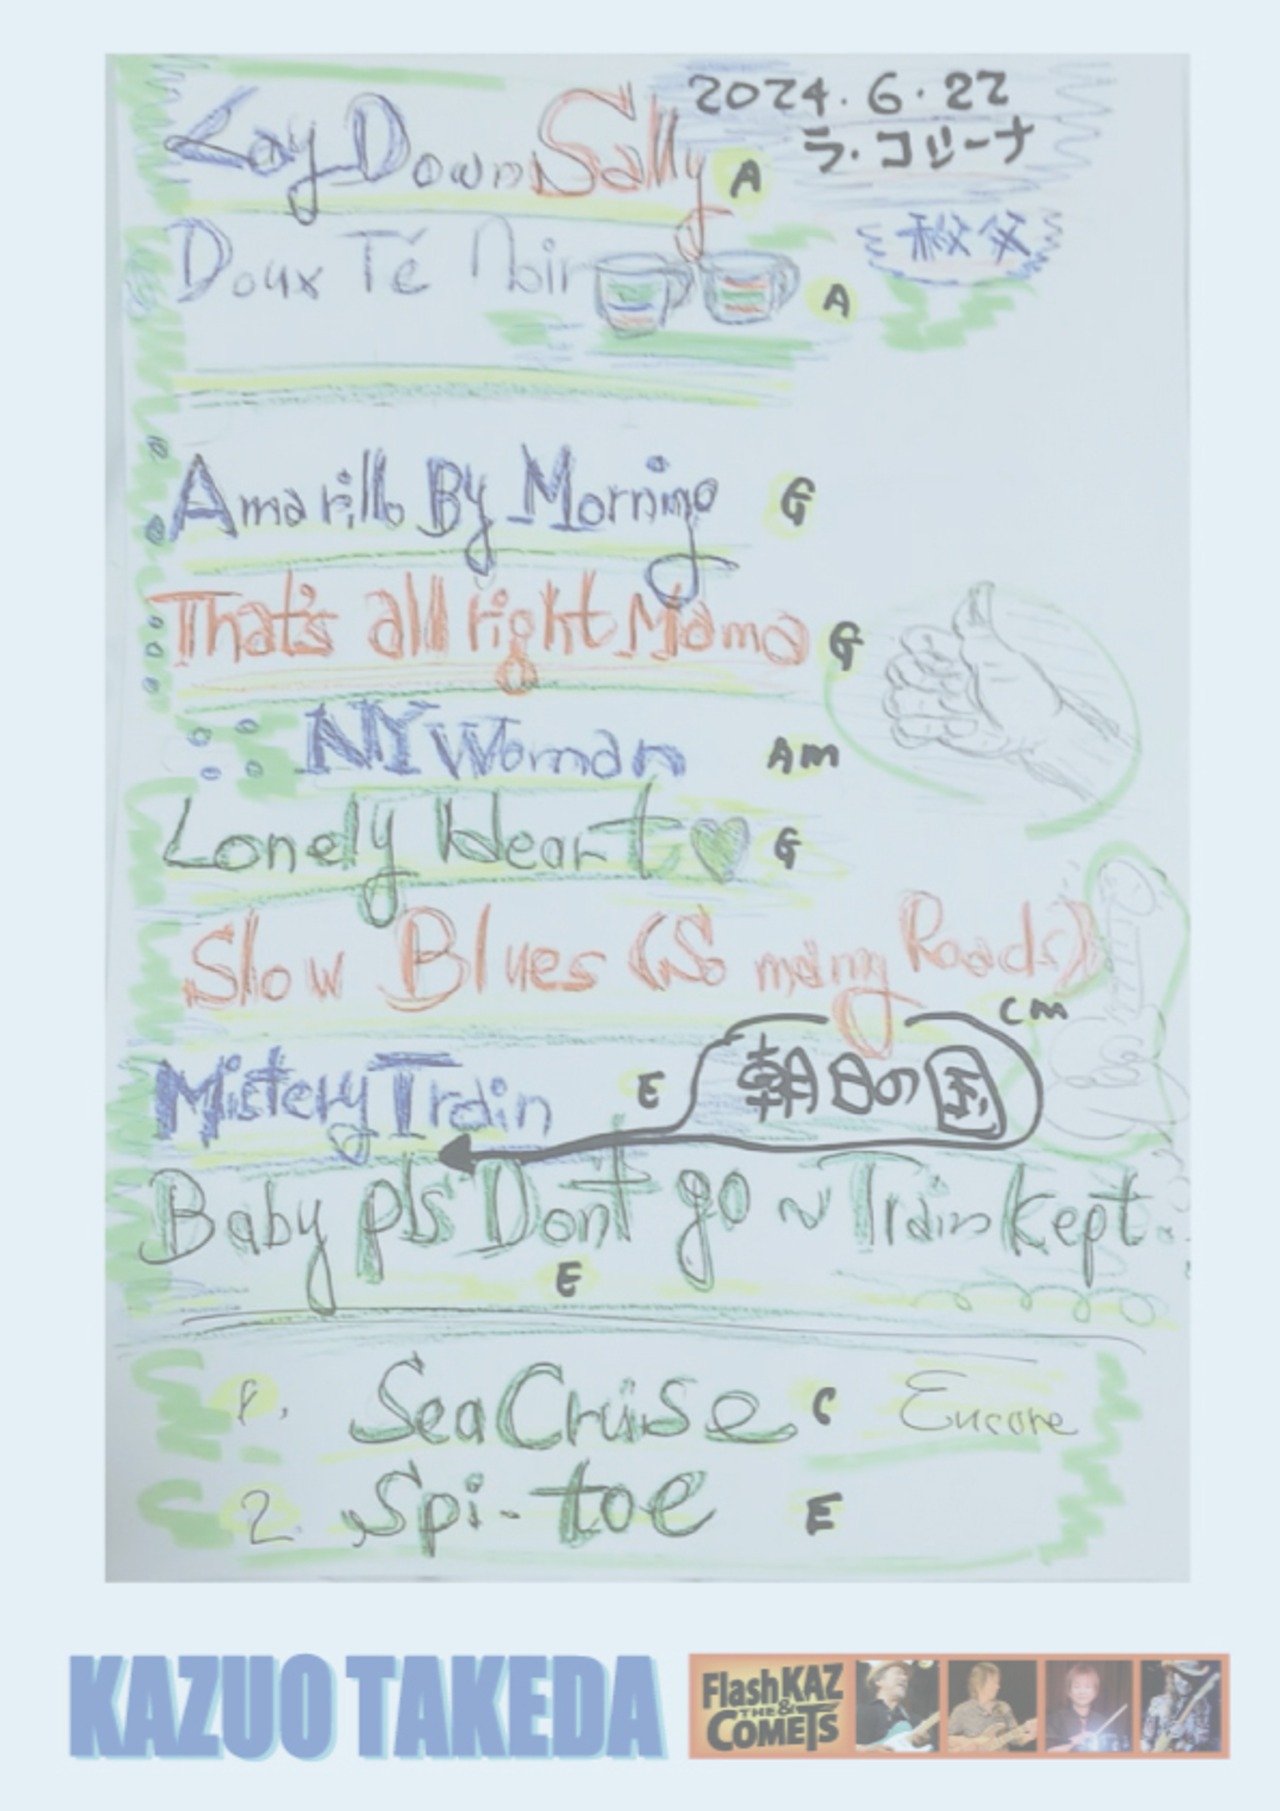 2024.6.22
ラ・コリーナ
秩父
Lay Down Sally A
Doux Té Noir A
Amarillo By Morning G
That's all right Mama G
NY Woman Am
Lonely Heart G
Slow Blues (So many Roads)
Cm
Mistery Train E 朝日の国
Baby pls Dont go ~ Train kept
E
1. Sea Cruise C Encore
2. Spi-toe E
KAZUO TAKEDA
Flash KAZ
& THE
COMETS